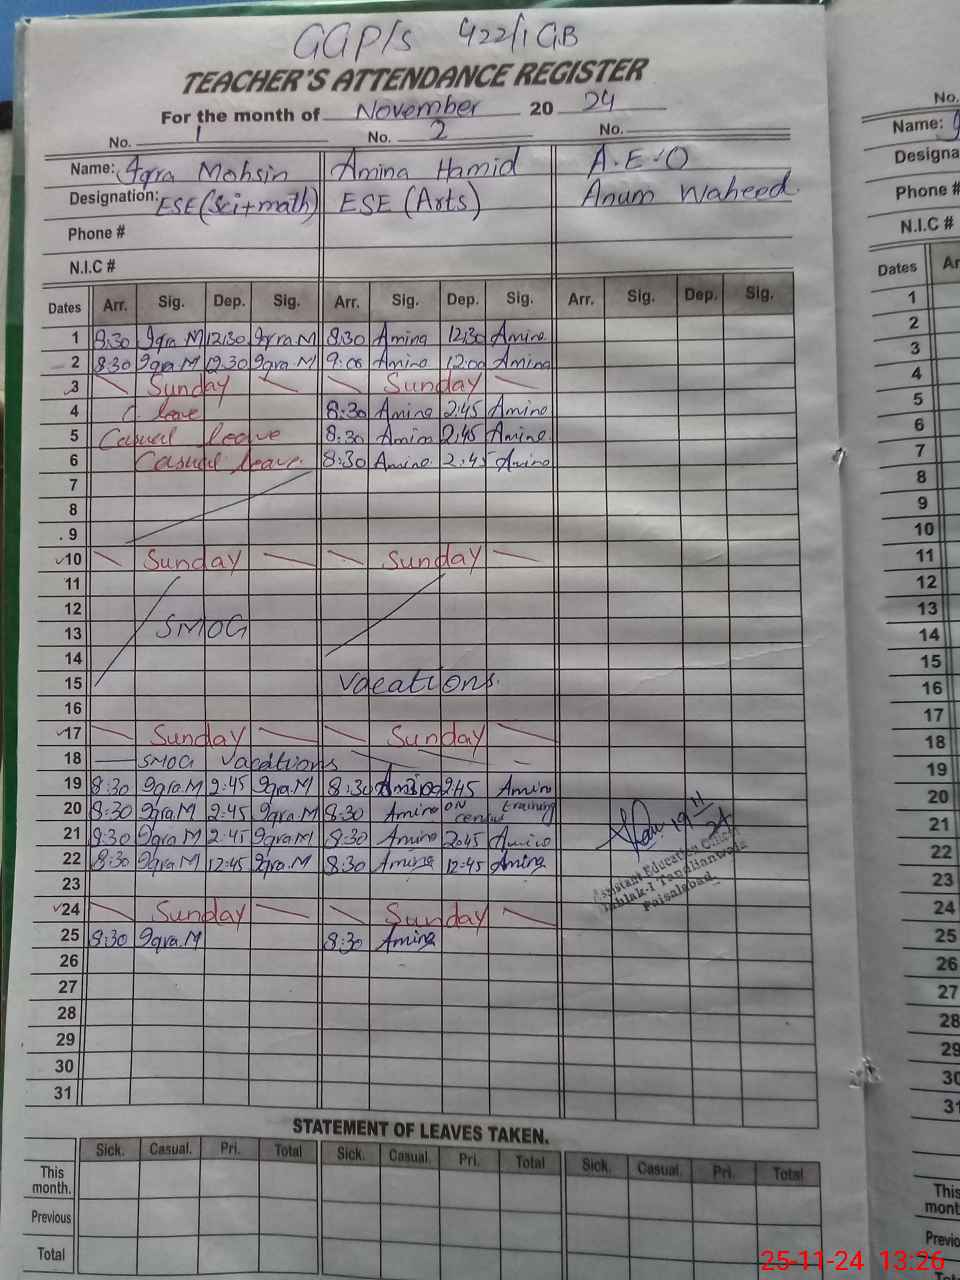 GGP/S 422/1 GB
TEACHER'S ATTENDANCE REGISTER
For the month of November 20 24
No. 1 No. 2 No.
Name: Iqra Mohsin Amina Hamid A.E.O
Designation: ESE (Sci+math) ESE (Arts) Anum Waheed.
Phone #
N.I.C #
Dates Arr. Sig. Dep. Sig. Arr. Sig. Dep. Sig. Arr. Sig. Dep. Sig.
1 8:30 Iqra.M 12:30 Iqra.M 8:30 Amina 12:30 Amina
2 8:30 Iqra.M 12:30 Iqra.M 9:00 Amina 12:00 Amina
3 Sunday Sunday
4 C leave 8:30 Amina 2:45 Amina
5 Casual leave 8:30 Amina 2:45 Amina
6 Casual leave. 8:30 Amina 2:45 Amina
7
8
9
10 Sunday Sunday
11
12
13 SMOG
14
15 Vacations.
16
17 Sunday Sunday
18 SMOG Vacations
19 8:30 Iqra.M 2:45 Iqra.M 8:30 Amina 2:45 Amina
20 8:30 Iqra.M 2:45 Iqra.M 8:30 Amina ON training
21 8:30 Iqra.M 2:45 Iqra.M 8:30 Amina 2:45 Amina
22 8:30 Iqra.M 12:45 Iqra.M 8:30 Amina 12:45 Amina
19/11/24
Assistant Education Officer
Tandlianwala
Faisalabad
23
24 Sunday Sunday
25 8:30 Iqra.M 8:30 Amina
26
27
28
29
30
31
STATEMENT OF LEAVES TAKEN.
Sick. Casual. Pri. Total Sick. Casual. Pri. Total Sick. Casual. Pri. Total
This month.
Previous
Total
No.
Name:
Designa
Phone #
N.I.C #
Dates Ar
1
2
3
4
5
6
7
8
9
10
11
12
13
14
15
16
17
18
19
20
21
22
23
24
25
26
27
28
29
30
31
This
mont
Previo
25-11-24 13:26